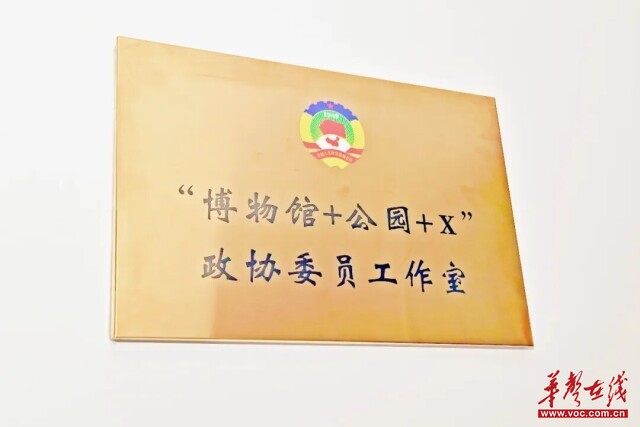 1949
“博物馆+公园+X”
政协委员工作室
华声在线
www.voc.com.cn